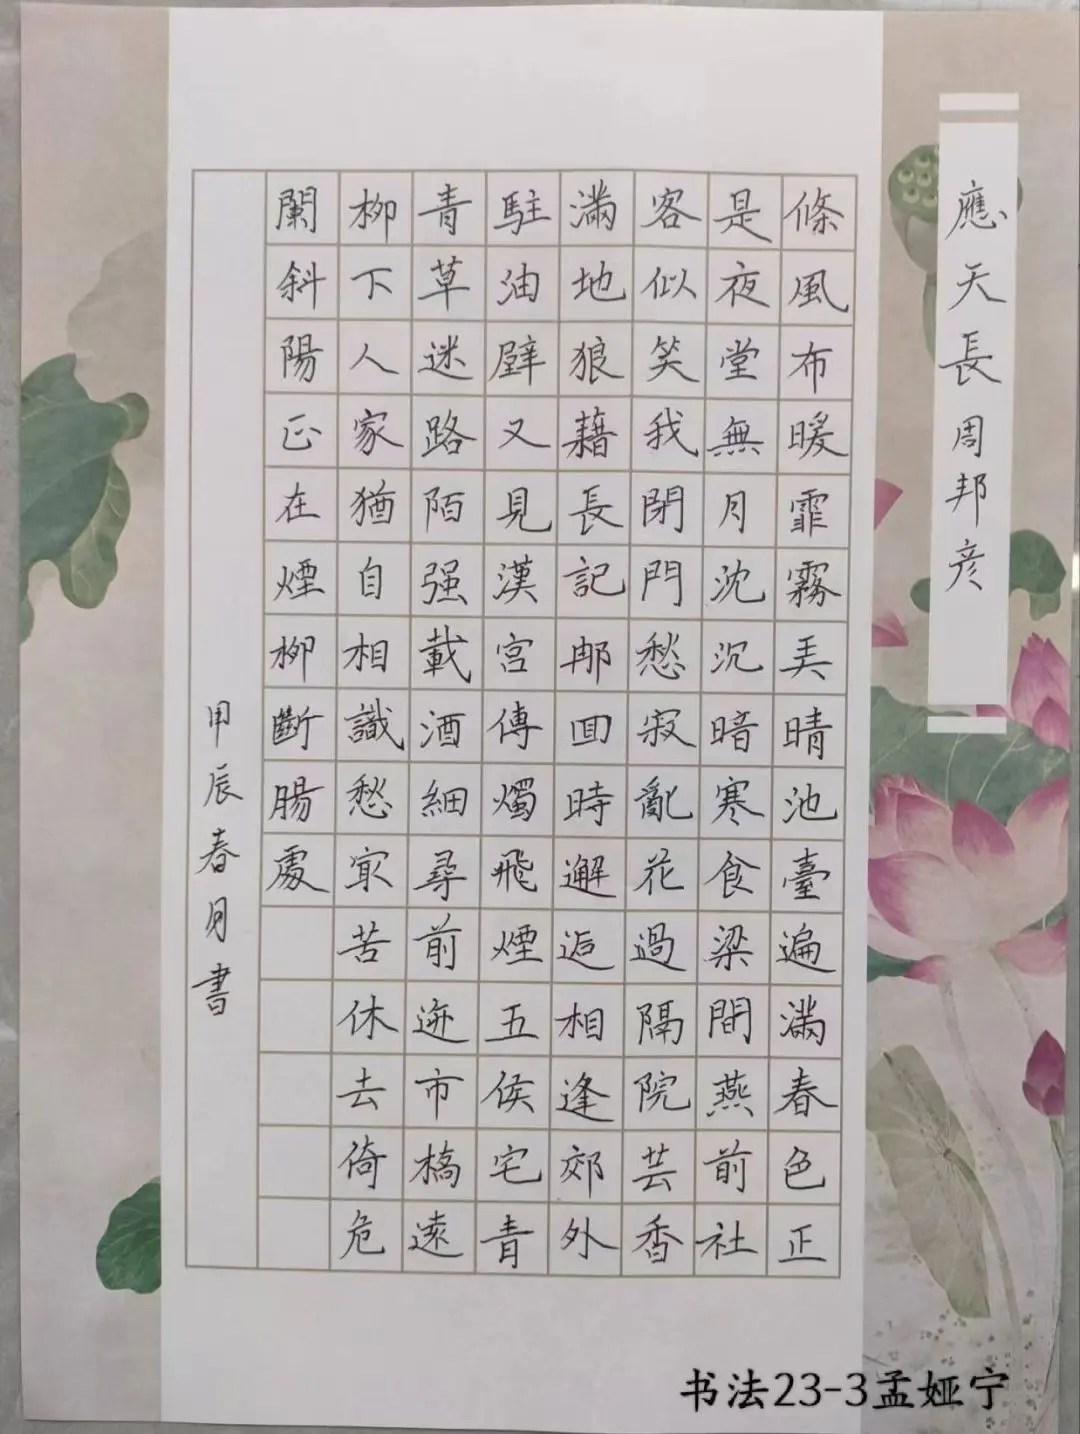 應天長 周邦彦
條風布暖霏霧弄晴池臺遍滿春色正
是夜堂無月沈沉暗寒食梁間燕前社
客似笑我閉門愁寂亂花過隔院芸香
滿地狼藉長記那回時邂逅相逢郊外
駐油壁又見漢宫傳燭飛煙五侯宅青
青草迷路陌强載酒細尋前迹市橋遠
柳下人家猶自相識愁寂苦休去倚危
闌斜陽正在煙柳斷腸處
甲辰春月書
书法23-3孟娅宁